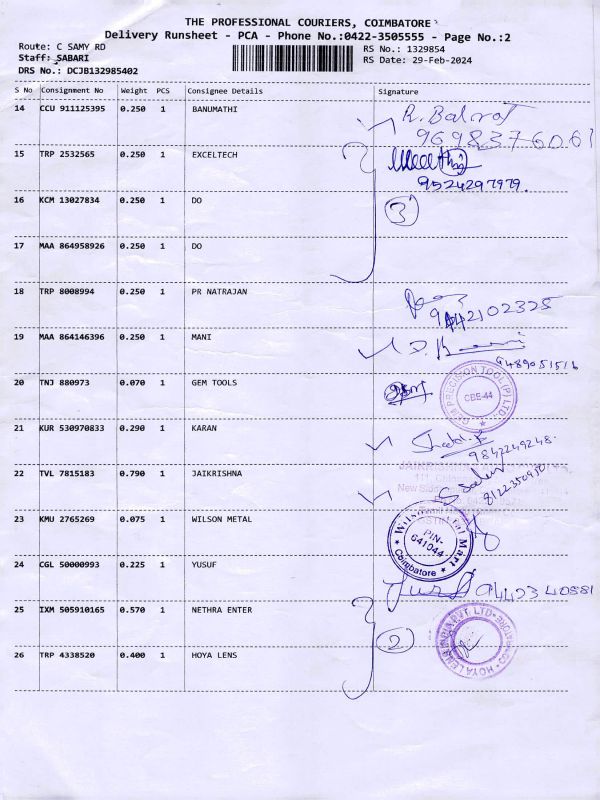 THE PROFESSIONAL COURIERS, COIMBATORE
Delivery Runsheet - PCA - Phone No.:0422-3505555 - Page No.:2
Route: C SAMY RD
RS No.: 1329854
Staff: SABARI
RS Date: 29-Feb-2024
DRS No.: DCJB132985402
S No Consignment No Weight PCS Consignee Details Signature
14 CCU 911125395 0.250 1 BANUMATHI
9698376061
15 TRP 2532565 0.250 1 EXCELTECH
9524297979.
16 KCM 13027834 0.250 1 DO
3
17 MAA 864958926 0.250 1 DO
18 TRP 8008994 0.250 1 PR NATRAJAN
9442102325
19 MAA 864146396 0.250 1 MANI
20 TNJ 880973 0.070 1 GEM TOOLS
PRECISION TOOL (P) LTD.
CBE-44
21 KUR 530970833 0.290 1 KARAN
9842249248.
22 TVL 7815183 0.790 1 JAIKRISHNA
8122350950
23 KMU 2765269 0.075 1 WILSON METAL
Mart
PIN-
641044
Coimbatore
24 CGL 50000993 0.225 1 YUSUF
9442340881
25 IXM 505910165 0.570 1 NETHRA ENTER
2
26 TRP 4338520 0.400 1 HOYA LENS
HOYA LENS INDIA PVT. LTD